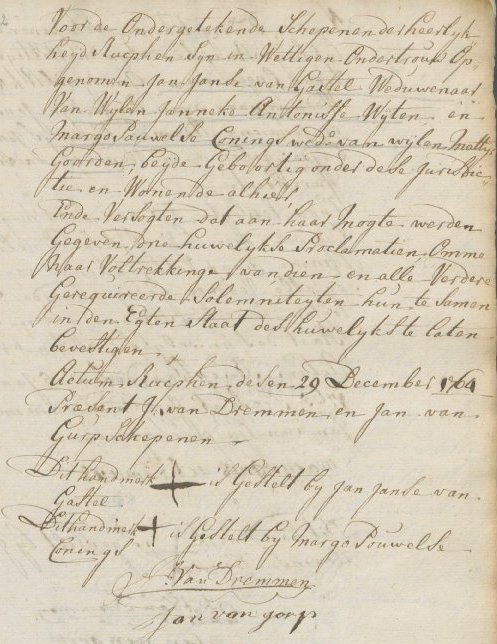 Voor de Ondergetekende Schepenen der heerlyk
heyd Rucphen Syn in Wettigen Ondertrouw Op
genomen Jan Janse van Gastel Weduwenaar
Van Wylen Janneke Antonisse Wyten en
Margo Pauwelse Conings wede van wylen Matthys
Goorden, beyde Geboortig onder dese Jurisdic
tie en Wonende alhier
Ende Versogten dat aan haar Mogte werden
Gegeven drie huwelykse Proclamatien Omme
Naar Voltrekkinge van dien en alle Verdere
Gerequireerde Solemniteyten hun te samen
in den Egten Staat des huwelyks te laten
bevestigen.
Actum Rucphen desen 29 December 1764
Præsent J. van Dremmen en Jan van
Gurp Schepenen
Dit handmerk + is Gestelt by Jan Janse van
Gastel
Dit handmerk + is Gestelt by Margo Pouwelse
Conings
J. Van Dremmen
Jan van gorp